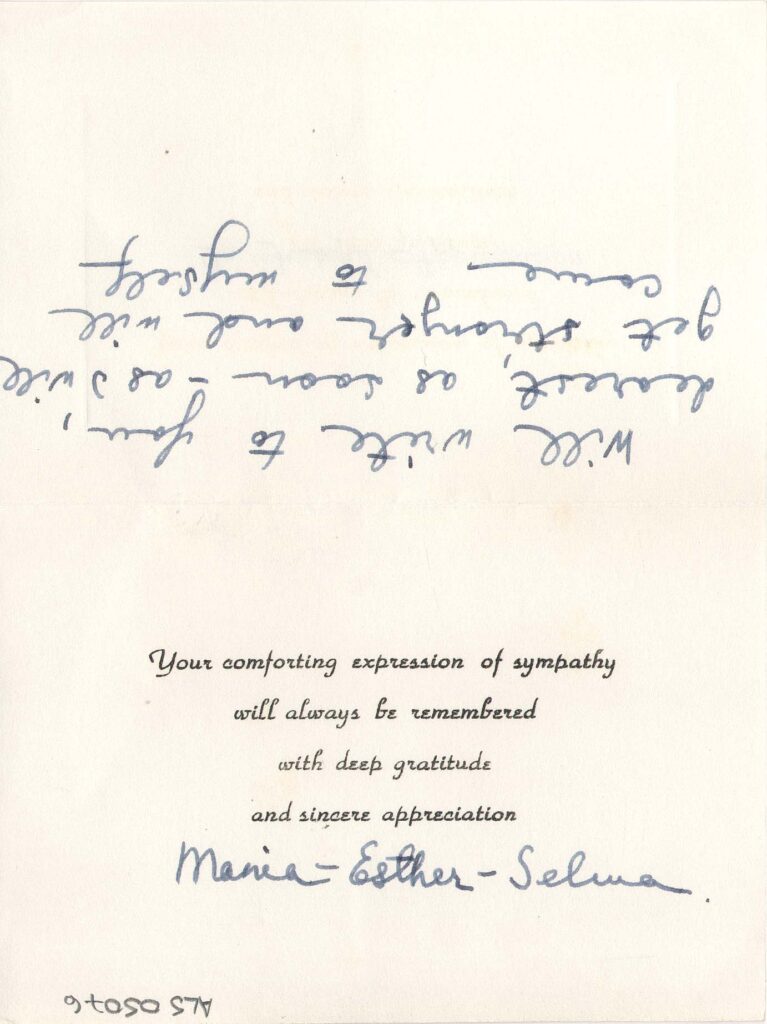 Will write to you,
dearest, as soon - as I will
get stronger and will
come to myself
Your comforting expression of sympathy
will always be remembered
with deep gratitude
and sincere appreciation
Mania - Esther - Selma.
ALS 05076